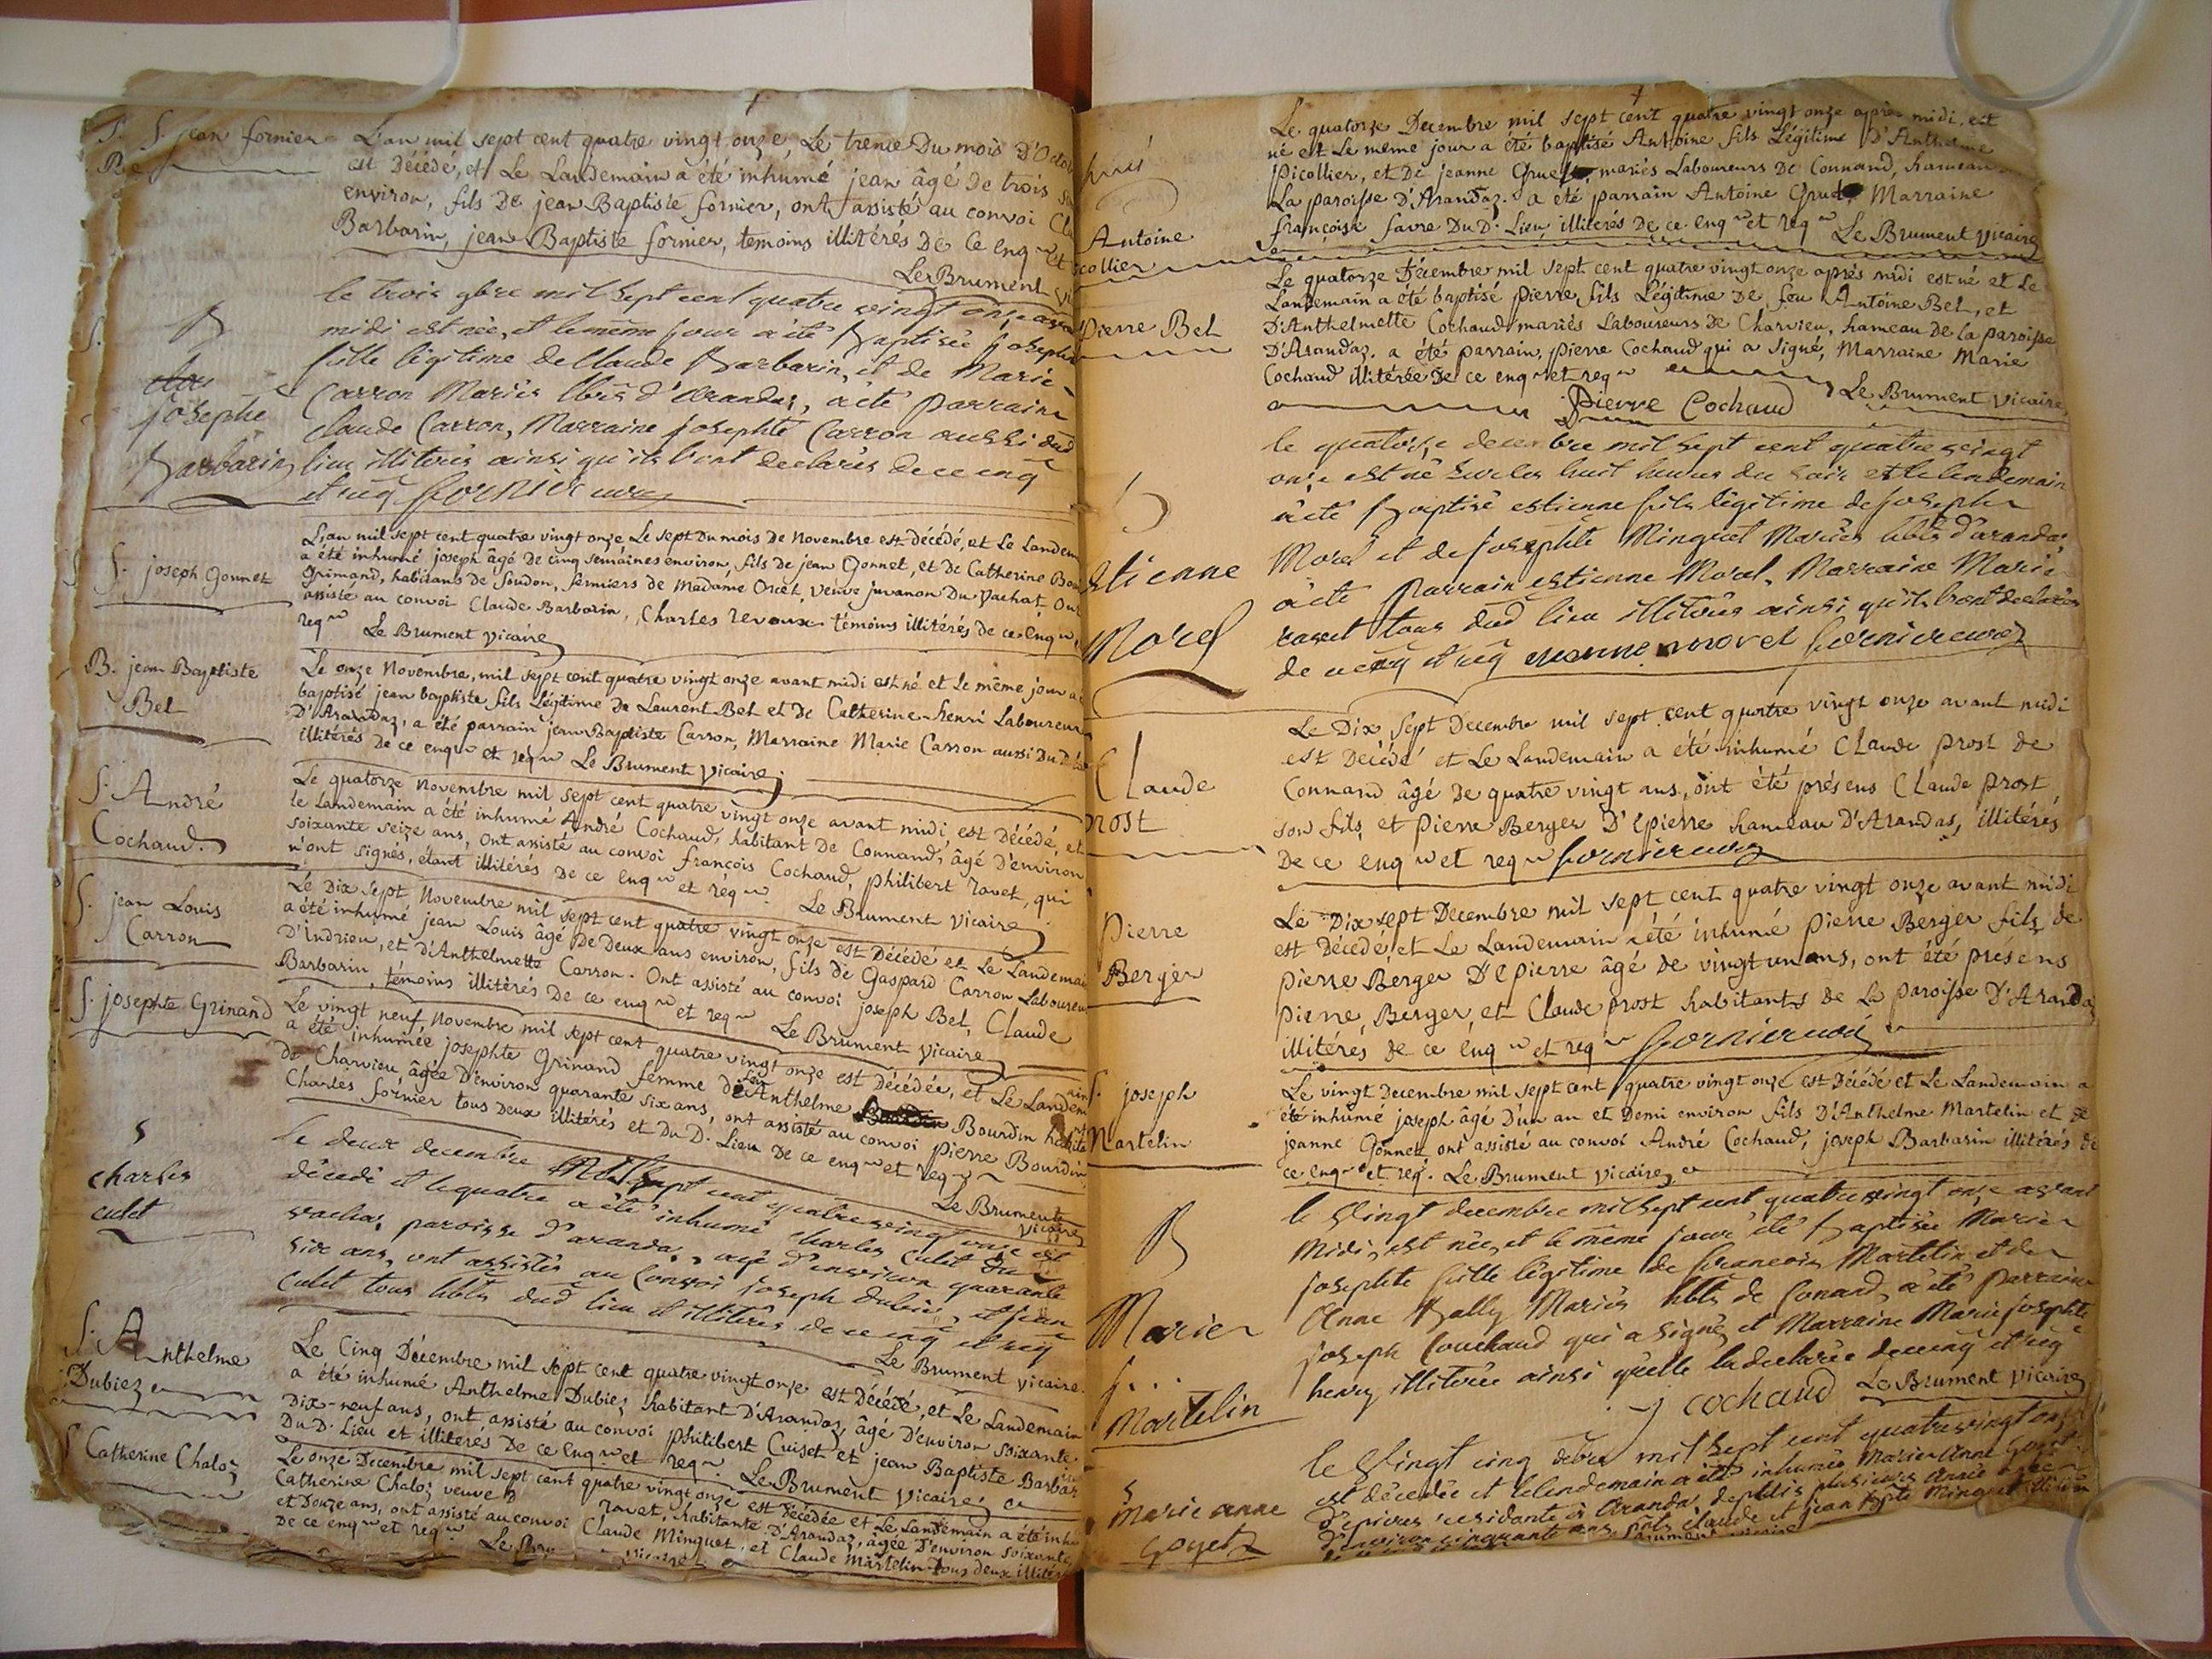 S. jean fornier
L'an mil sept cent quatre vingt onze, Le trente Du mois D'Octo
est Décédé, et Le Landemain a été inhumé jean âgé de trois
environ, fils De jean Baptiste fornier, ont assisté au convoi Cl
Barbarin, jean Baptiste fornier, temoins illitérés De Ce enq.ⁿ et
Le Brument
B
josephe
Barbarin
le trois 9bre mil sept cent quatre vingt onze avant
midi est née, et le même jour a été Baptisée josephe
fille légitime de Claude Barbarin, et de Marie
Carron Mariés d'arandas, a été parrain
Claude Carron, Marraine josephte Carron aussi dud
lieu illiterés ainsi qu'ils l'ont declarés de ce enq
et req fornier curé
S. joseph Gonnet
L'an mil sept cent quatre vingt onze Le sept Du mois de Novembre est Décédé, et Le Landem
a été inhumé joseph âgé de cinq semaines environ, fils de jean Gonnet, et De Catherine
Grimand, habitans de fermiers de Madame veuve juvanon Du vachat. Ont
assisté au convoi Claude Barbarin, Charles revoux témoins illitérés de ce enqⁿ
reqⁿ Le Brument vicaire
B. jean Baptiste
Bel
Le onze Novembre, mil sept cent quatre vingt onze avant midi est né et Le même jour a
baptisé jean baptiste fils Légitime De Laurent Bel et De Catherine henri Laboureur
D'Arandaz, a été parrain jean Baptiste Carron, Marraine Marie Carron aussi Du D.
illitérés De ce enqⁿ et reqⁿ Le Brument vicaire
S. André
Cochaud.
Le quatorze Novembre mil sept cent quatre vingt onze avant midi, est Décédé, et
le Landemain a été inhumé André Cochaud, habitant De Connand, âgé D'environ
soixante seize ans, Ont assisté au convoi françois Cochaud, philibert ravet, qui
n'ont signés, étant illitérés De ce enqⁿ et reqⁿ. Le Brument vicaire
S. jean Louis
Carron
Le Dix sept Novembre mil sept cent quatre vingt onze est Décédé et Le Landemai
a été inhumé jean Louis âgé De Deux ans environ, fils de Gaspard Carron Laboureur
D'Indrieu, et D'Anthelmette Carron. Ont assisté au convoi joseph Bel, Claude
Barbarin, témoins illitérés De ce enqⁿ et reqⁿ Le Brument vicaire
S. josephte Grinand
Le vingt neuf Novembre mil sept cent quatre vingt onze est Décédée, et Le Landem
a été inhumée josephte Grinand femme De feu Anthelme Bourdin habit
de Charvieu âgée D'environ quarante six ans, ont assisté au convoi pierre Bourdin
Charles fornier tous deux illitérés et Du D. Lieu De ce enqⁿ et reqⁿ
Le Brument
vicaire
S
charles
culet
le deux decembre Mil sept cent quatre vingt onze est
décedé et le quatre a été inhumé charles culet du
vachat paroisse d'aranda, agé d'environ quarante
six ans, ont assistés au Convoi joseph dubiez et jean
Culet tous hbts dud lieu et illiterés de ce enq et req
Le Brument vicaire
S. Anthelme
Dubiez
Le Cinq Décembre mil sept cent quatre vingt onze est Décédé, et Le Landemain
a été inhumé Anthelme Dubiez habitant D'Arandaz, âgé D'environ soixante
Dix-neuf ans, ont assisté au convoi philibert Cuiset et jean Baptiste Barbar
Du D. Lieu et illiterés De ce enqⁿ et reqⁿ. Le Brument vicaire
S Catherine Chaloz
Le onze Decembre mil sept cent quatre vingt onze est Décédée et Le Landemain a été inhu
Catherine Chaloz veuve D ravet, habitante D'Arandaz, âgée D'environ soixante
et Douze ans, ont assisté au convoi Claude Minguet, et Claude Martelin tous deux illitér
De ce enqⁿ et reqⁿ Le Bru vicaire
Antoine
collier
Le quatorze Decembre mil sept cent quatre vingt onze après midi, est
né et Le même jour a été baptisé Antoine fils Légitime D'Anthelme
picollier, et De jeanne Gruet, mariés Laboureurs De Connand, hameau
La paroisse D'Arandaz. a été parrain Antoine Gruet Marraine
françoise favre Du D. Lieu illiterés De ce enqⁿ et reqⁿ Le Brument vicaire
Pierre Bel
Le quatorze Décembre mil sept cent quatre vingt onze après midi est né et Le
Landemain a été baptisé pierre, fils Légitime De feu Antoine Bel, et
D'Anthelmette Cochaud mariés Laboureurs De Charvieu, hameau de La paroisse
D'Arandaz. a été parrain, pierre Cochaud qui a signé, Marraine Marie
Cochaud illitérée De ce enqⁿ et reqⁿ Le Brument vicaire
Pierre Cochaud
B
Etienne
Morel
le quatorze decembre mil sept cent quatre vingt
onze est né sur les huit heures du soir et le lendemain
a été Baptisé estienne fils légitime de joseph
Morel et de josephte Minguet Mariés hbts d'aranda,
a été Parrain estienne Morel, Marraine Marie
ravet tous dud lieu illiterés ainsi qu'ils l'ont declarés
de ce enq et req morel fornier curé
Claude
prost
Le Dix sept Decembre mil sept cent quatre vingt onze avant midi
est Décédé et Le Landemain a été inhumé Claude prost de
Connand âgé De quatre vingt ans, ont été présens Claude prost
son fils, et pierre Berger D'Epierre hameau D'Arandas, illitérés
De ce enqⁿ et reqⁿ fornier curé
Pierre
Berger
Le Dix sept Decembre mil sept cent quatre vingt onze avant midi
est Décédé, et Le Landemain a été inhumé Pierre Berger fils de
pierre Berger D'Epierre âgé de vingt un ans, ont été présens
pierre, Berger, et Claude prost habitants De La paroisse D'Aranda
illitérés de ce enqⁿ et reqⁿ fornier curé
S. joseph
Martelin
Le vingt Decembre mil sept cent quatre vingt onze est Décédé et Le Landemain a
été inhumé joseph âgé D'un an et Demi environ fils D'Anthelme Martelin et De
jeanne Gonnet, ont assisté au convoi André Cochaud, joseph Barbarin illitérés de
ce enqⁿ et req. Le Brument vicaire
B
Marie
j...
Martelin
le vingt decembre mil sept cent quatre vingt onze avant
Midi, est née, et le même jour été Baptisée Marie
josephte fille légitime de francois Martelin et de
Anne Bally Mariés hbts de Conand, a été parrain
joseph Couchaud qui a signé, et Marraine Marie josephte
henry illiterée ainsi qu'elle l'a declarée de ce enq et req
j cochaud Le Brument vicaire
S
Marie anne
goyet
le vingt cinq mil sept cent quatre vingt onze
est décedée et le lendemain a été inhumée Marie anne
d'epierre residante à Aranda, depuis plusieurs années agée
d'environ cinquante ans, claude et jean bpte Minguet